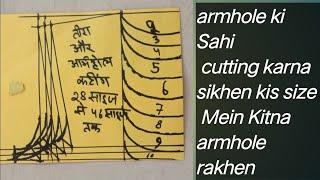 तीरा
और
आर्महोल
कटींग
28 साइज
से 46 साइज
तक
3
4
5
6
7
8
9
armhole ki
Sahi
cutting karna
sikhen kis size
Mein Kitna
armhole
rakhen